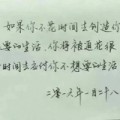 如果你不花时间去创造你
想要的生活,你将被迫花很
时间去应付你不想要的生活
二零一六年一月二十八